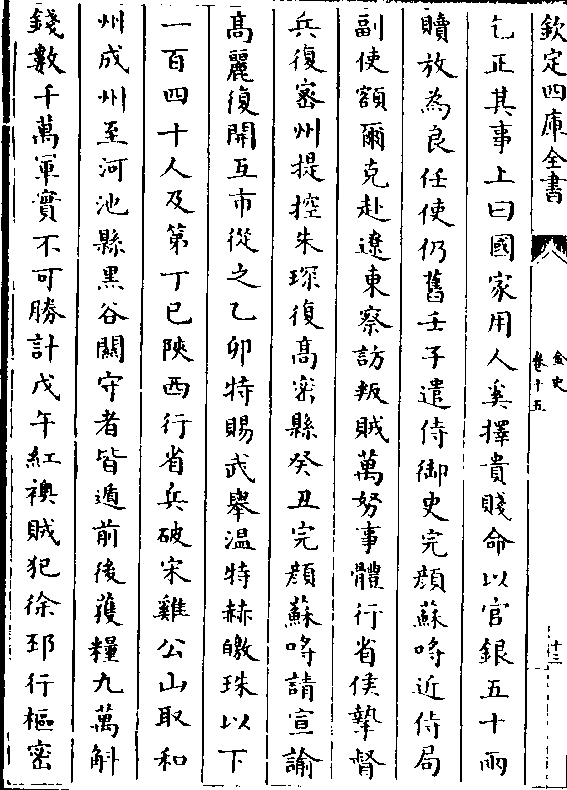 欽定四庫全書
金史
卷十五
十三
乞正其事上曰國家用人奚擇貴賤命以官銀五十兩
贖放為良任使仍舊壬子遣侍御史完顏蘇呼近侍局
副使額爾克赴遼東察訪叛賊萬努事體行省侯摯督
兵復密州提控朱琛復高密縣癸丑完顏蘇呼請宣諭
高麗復開互市從之乙卯特賜武舉溫特赫繳珠以下
一百四十人及第丁巳陝西行省兵破宋雞公山取和
州成州至河池縣黑谷關守者皆遁前後獲糧九萬斛
錢數千萬軍實不可勝計戊午紅襖賊犯徐邳行樞密